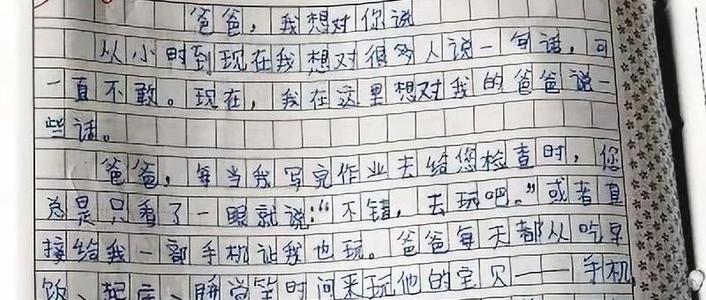 爸爸，我想对你说
从小时到现在我想对很多人说一句话，可
一直不敢。现在，我在这里想对我的爸爸说一
些话。
爸爸，每当我写完作业去给您检查时，您
总是只看了一眼就说：“不错，去玩吧。”或者直
接给我一部手机让我也玩。爸爸每天都从吃早
饭、起床、睡觉等时间来玩他的宝贝——手机